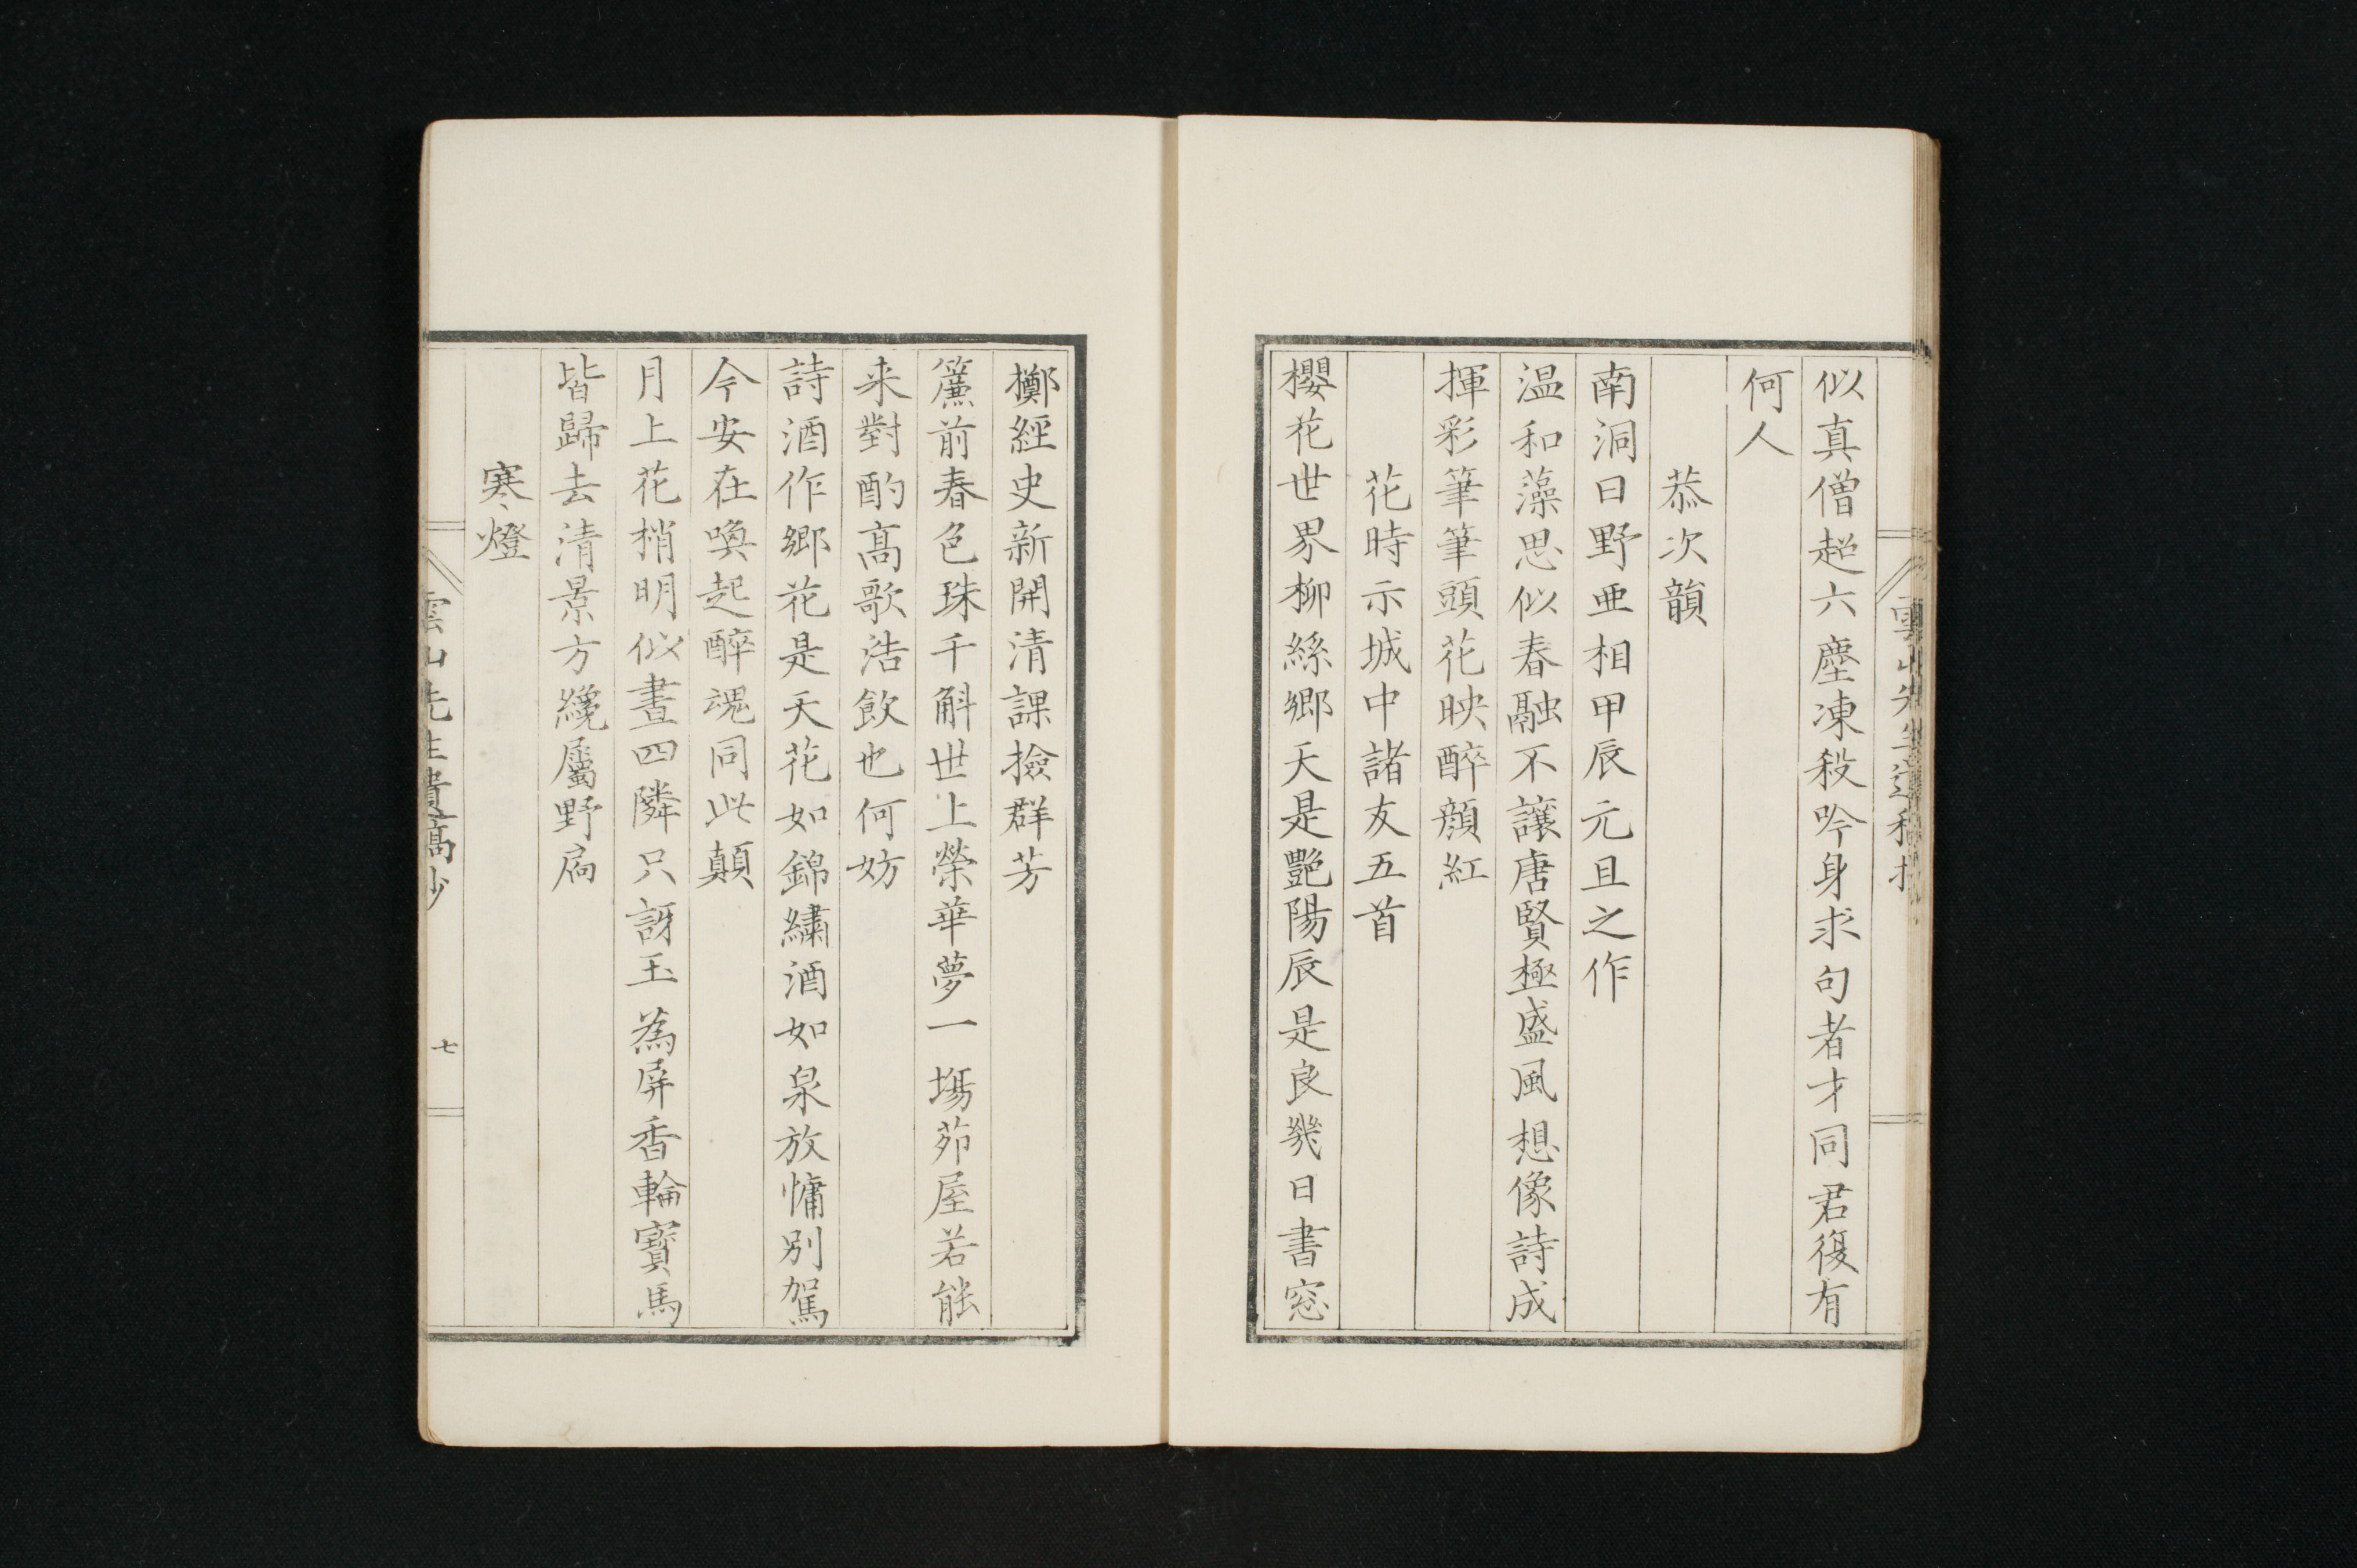 似真僧超六塵凍殺吟身求句者才同君復有
何人
恭次韻
南洞日野亜相甲辰元旦之作
温和藻思似春融不讓唐賢極盛風想像詩成
揮彩筆筆頭花映醉顔紅
花時示城中諸友五首
櫻花世界柳絲鄉天是艷陽辰是良幾日書窓
擲經史新開清課撿群芳
簾前春色珠千斛世上榮華夢一場茆屋若能
来對酌髙歌浩飲也何妨
詩酒作鄉花是天花如錦繡酒如泉放慵別駕
今安在喚起醉魂同此顛
月上花梢明似晝四隣只訝玉為屏香輪寶馬
皆歸去清景方纔屬野扃
寒燈
雲山先生遺稿抄
七